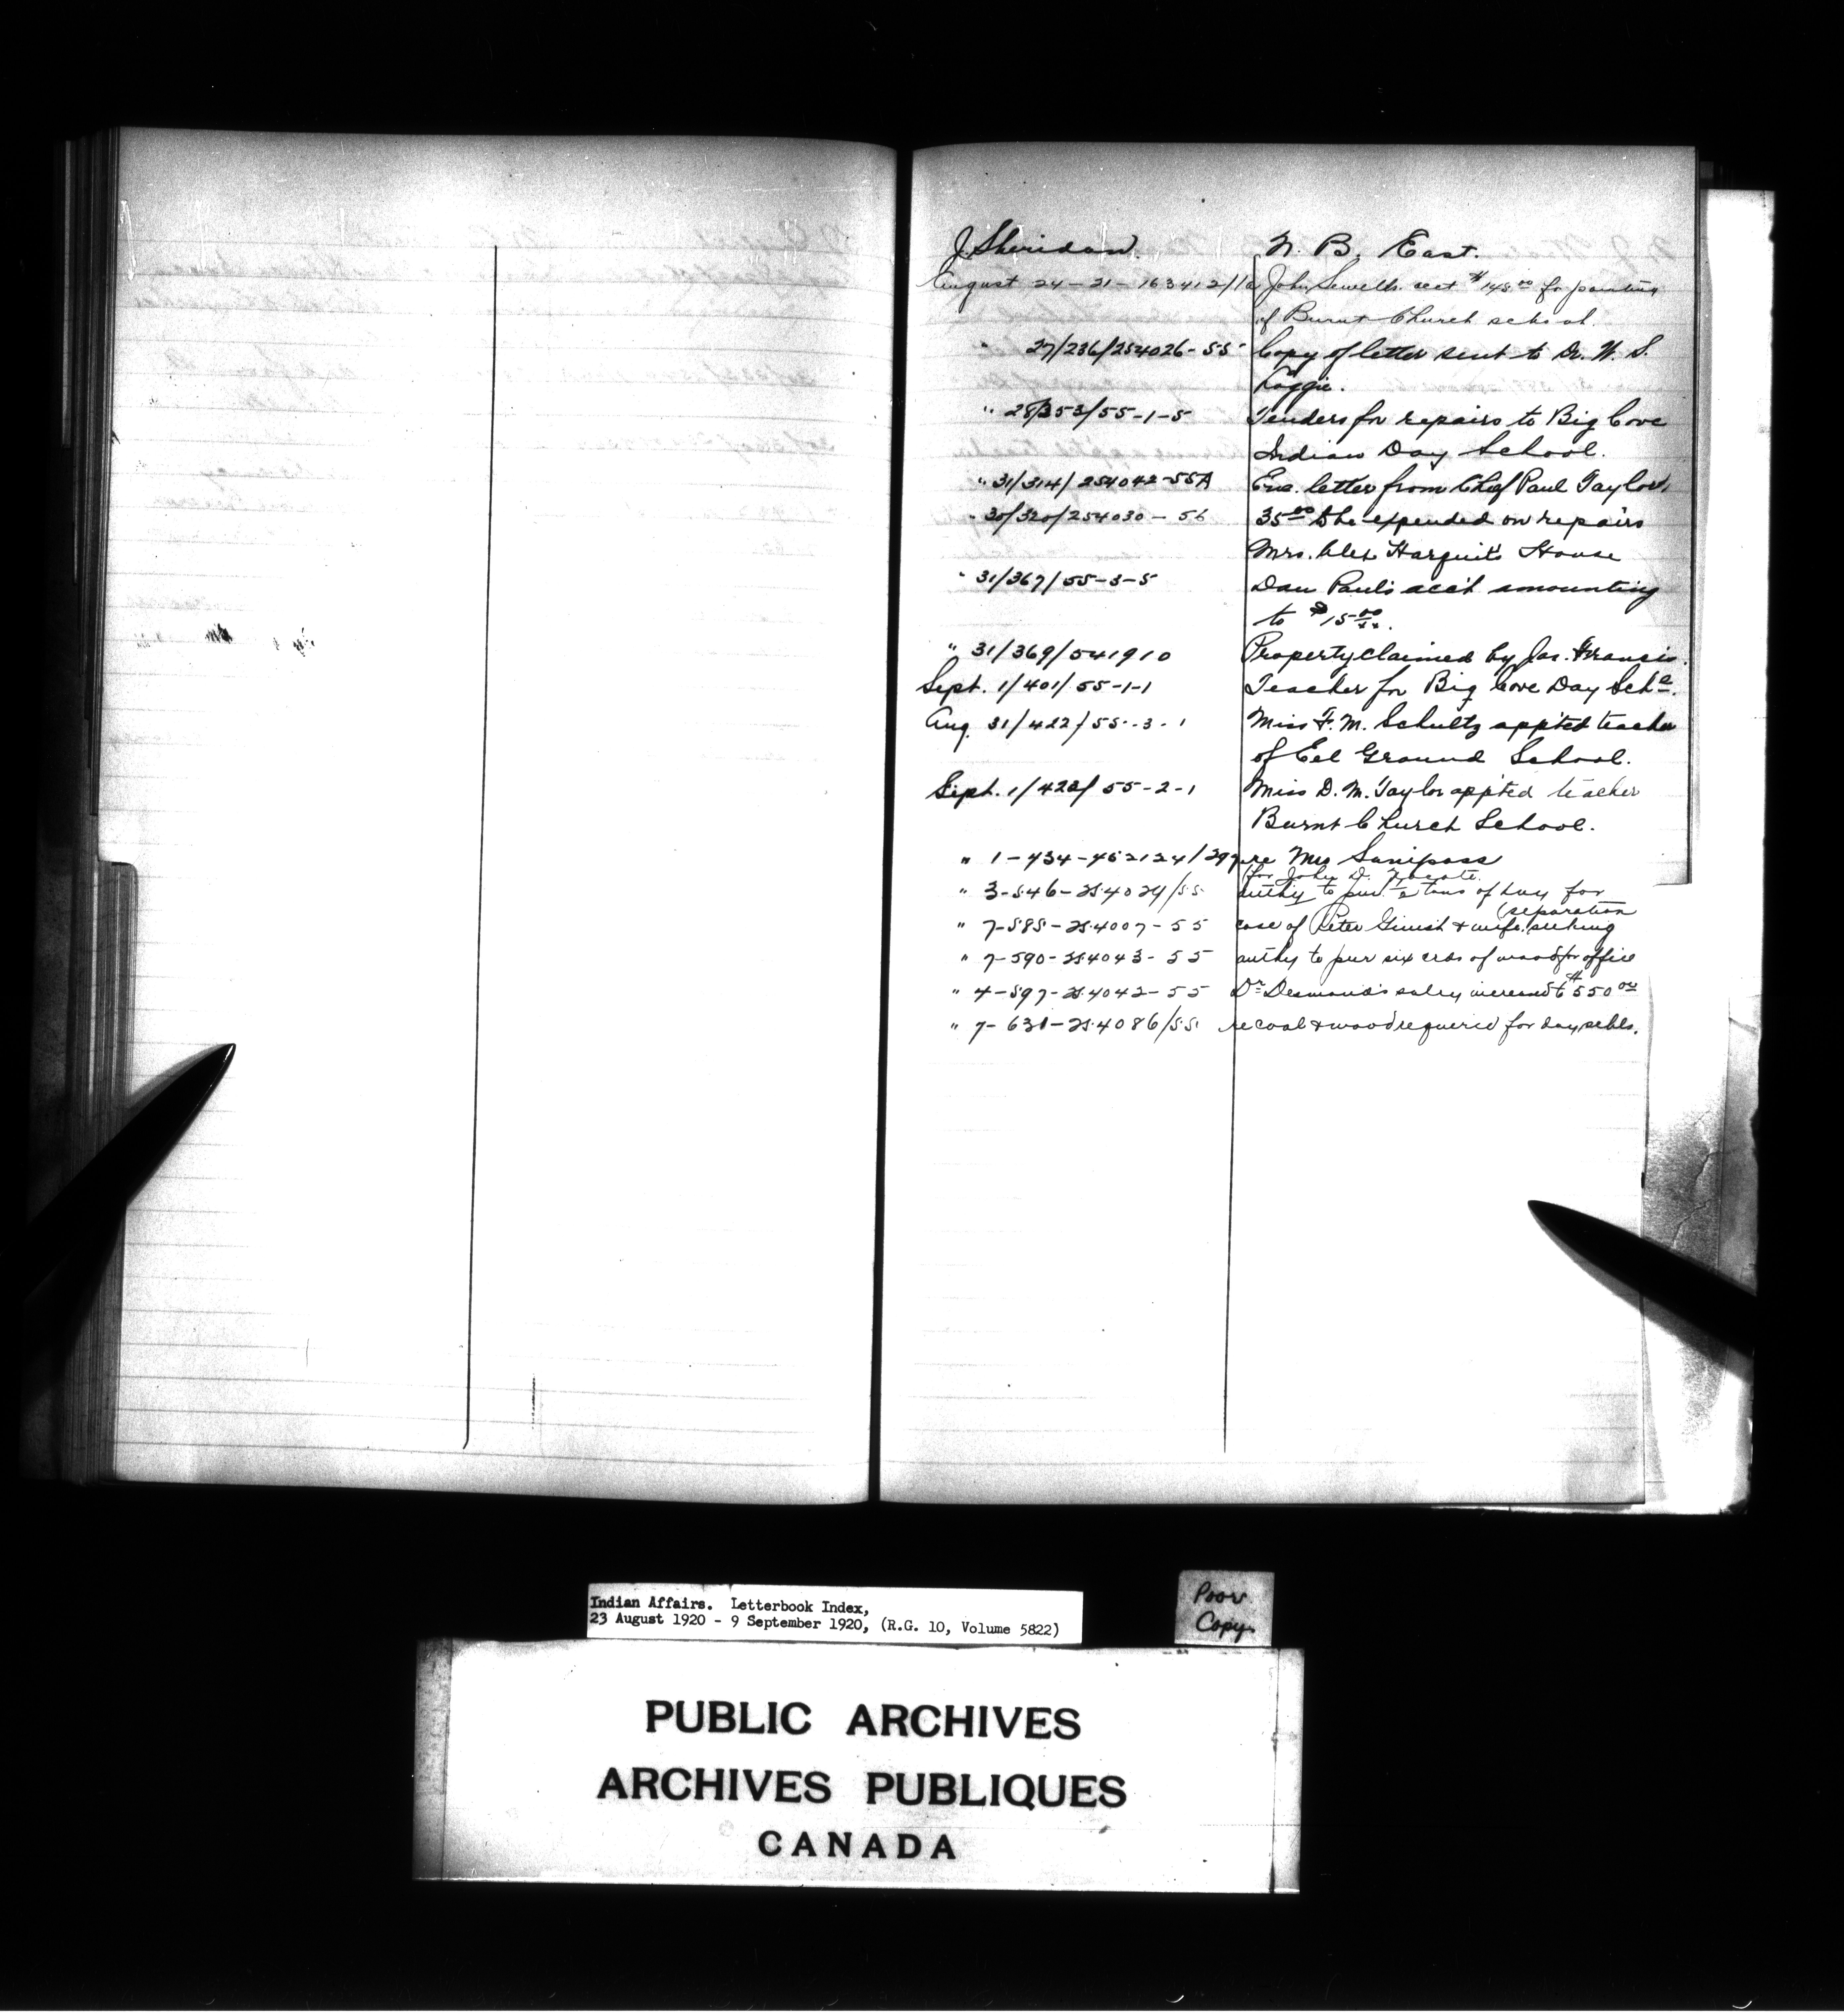 J. Sheridan. N. B. East.
August 24-21-163412/1a John Sewells acct $148.00 for painting
of Burnt Church school.
" 27/236/254026-55 Copy of letter sent to Dr. W. S.
Loggie.
" 28/353/55-1-5 Tenders for repairs to Big Cove
Indian Day School.
" 31/314/254042-55A Enc. letter from Chief Paul Taylor.
" 30/320/254030-56 35.00 to be expended on repairs
Mrs. Alex House
" 31/367/55-3-5 Dan Paul's acc't amounting
to $15.00.
" 31/369/541910 Property claimed by Jas. Francis.
Sept. 1/401/55-1-1 Teacher for Big Cove Day Schl.
Aug. 31/422/55-3-1 Miss F. M. Schultz app'ted teacher
of Eel Ground School.
Sept. 1/423/55-2-1 Miss D. M. Taylor app'ted teacher
Burnt Church School.
" 1-434-462124/297 re Mrs Sanipass
for John D.
" 3-546-254029/55 authy to pur. 2 tons of hay for
(separation
" 7-585-254007-55 case of Peter Ginish & wife seeking
" 7-590-254043-55 authy to pur six crds of wood for office
" 4-597-254042-55 Dr Desmond's salry increased to $550.00
" 7-631-254086/55 re coal & wood required for day schls.
Indian Affairs. Letterbook Index,
23 August 1920 - 9 September 1920, (R.G. 10, Volume 5822)
Poor
Copy.
PUBLIC ARCHIVES
ARCHIVES PUBLIQUES
CANADA